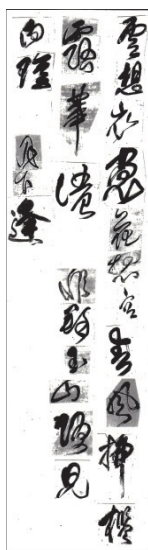 雲想衣裳花想容春風拂檻
露華濃 非群玉山頭見
向瑤 月下逢